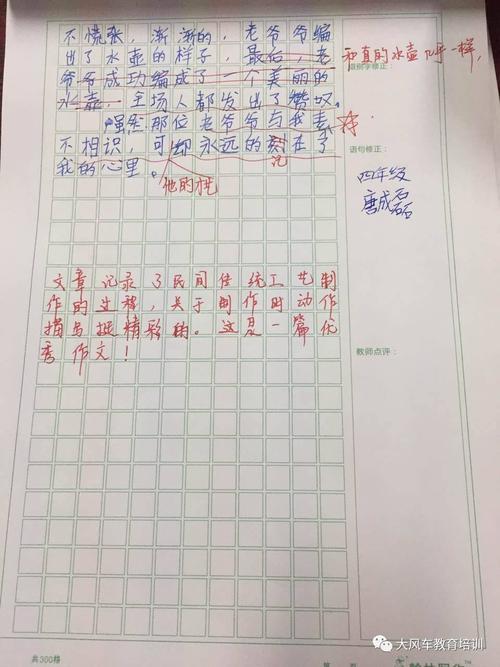 不慌张，渐渐的，老爷爷编
出了水壶的样子，最后，老
爷爷成功编成了一个美丽的
水壶，主场人都发出了赞叹。
虽然那位老爷爷与我素
不相识，可却永远的刻在了
我的心里。
和真的水壶几乎一样，
错别字修正：
语句修正：
记
他的
四年级
唐成磊
文章记录了民间传统工艺制
作的过程，关于制作时动作
描写挺精彩的。这是一篇优
秀作文！
教师点评：
共300格
第
页
大风车教育培训